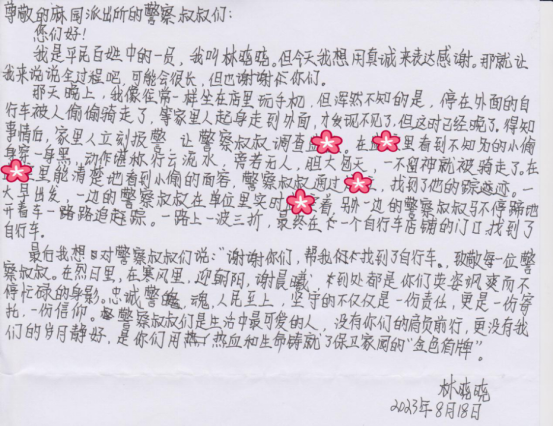 尊敬的麻园派出所的警察叔叔们:
您们好!
我是平民百姓中的一员,我叫林晓晓。但今天我想用真诚来表达感谢。那就让
我来说说全过程吧,可能会很长,但也谢谢你们。
那天晚上,我像往常一样坐在店里玩手机,但浑然不知的是,停在外面的自
行车被人偷偷骑走了,等家里人起身走到外面,才发现不见了,但这时已经晚了。得知
事情后,家里人立刻报警,让警察叔叔调查。在里看到不知名的小偷
身穿一身黑,动作堪称行云流水,旁若无人,胆大包天,一不留神就被骑走了。在
里能清楚地看到小偷的面容,警察叔叔通过,找到了他的踪迹。一
大早出发,一边的警察叔叔在单位里实时看,另一边的警察叔叔马不停蹄地
开着车一路路追赶踪。一路上一波三折,最终在一个自行车店铺的门口找到了
自行车。
最后我想对警察叔叔们说:“谢谢你们,帮我找到了自行车。致敬每一位警
察叔叔。在烈日里,在寒风里,迎朝阳,谢晨曦,到处都是你们英姿飒爽而不
停忙碌的身影。忠诚警魂,人民至上,坚守的不仅仅是一份责任,更是一份寄
托,一份信仰。警察叔叔们是生活中最可爱的人,没有你们的肩负前行,更没有我
们的岁月静好,是你们用热血和生命铸就了保卫家园的“金色盾牌”。
林晓晓
2023年8月18日